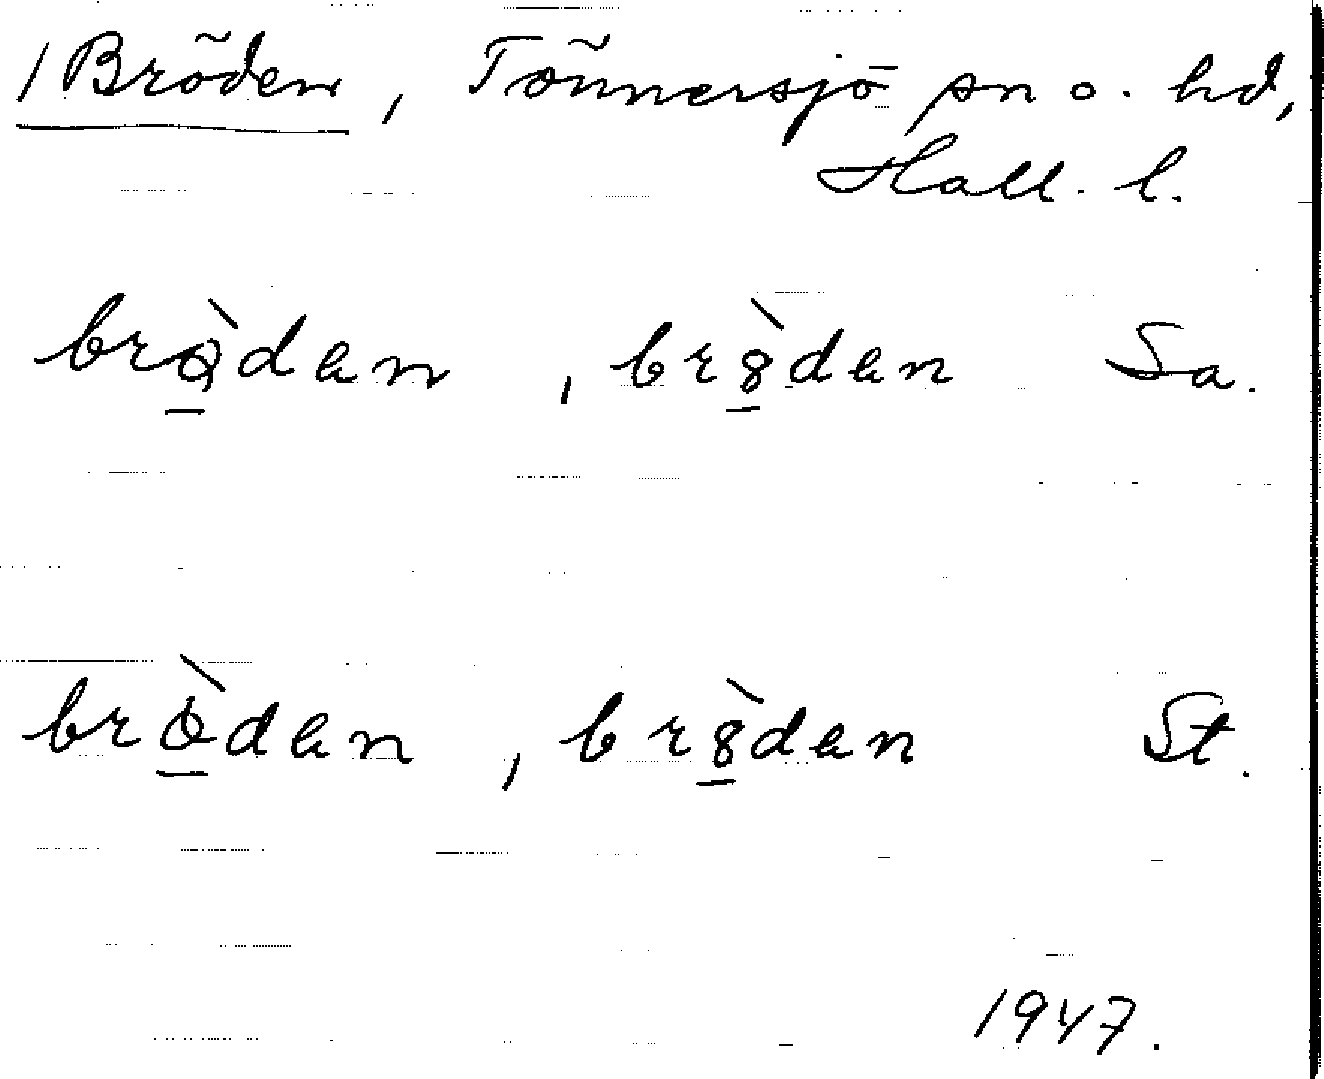 1 Bröden, Tönnersjö sn o. hd,
Hall. l.
brö̀dan, brö̀dan Sa.
brö̀dan, brö̀dan St.
1947.